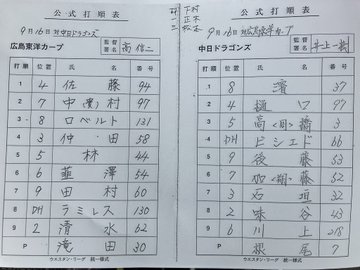 公式打順表
9月16日対中日ドラゴンズ
広島東洋カープ 監督署名 高 信二
打順 位置 氏名 番号
1 4 佐藤 94
2 7 中(奨)村 97
3 8 ロベルト 131
4 3 仲田 58
5 5 林 44
6 6 韮澤 54
7 9 田村 60
8 DH ラミレス 130
9 2 清水 62
P 滝田 30
ウエスタン・リーグ 統一様式
下村
正木
公式打順表
9月16日対広島東洋カープ
中日ドラゴンズ 監督署名 井上一樹
打順 位置 氏名 番号
1 8 濱 37
2 4 樋口 97
3 5 高(周)橋 3
4 DH ビシエド 66
5 9 後藤 53
6 7 加(翔)藤 52
7 3 石垣 32
8 2 味谷 43
9 6 川上 218
P 根尾 7
ウエスタン・リーグ 統一様式